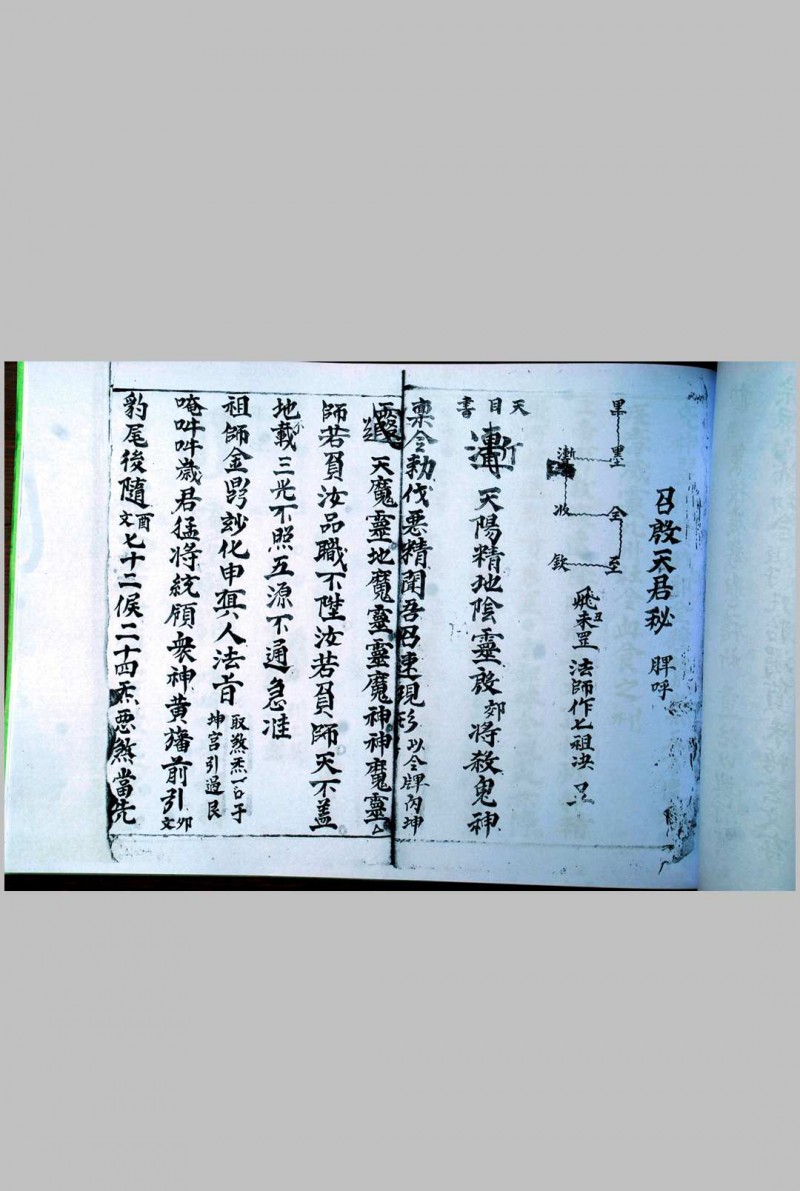 召殷天君秘 脾呼
飛丑未罡 法師作七祖决
畢 墨 全 至
收 欽
天目書
天陽精地陰靈敌郊將殺鬼神
稟令勑伐恶精聞吾召速現形 以令牌內坤
天魔靈地魔靈靈魔神神魔靈
師若負汝品職不陞汝若負師天不盖
地不載三光不照五源不通急准
祖師金 玅化申真人法旨 取煞炁一口于坤宫引過艮
唵吽吽歲君猛將統領衆神黄旛前引 卯文
豹尾後隨 酉文 七十二候二十四炁恶煞當先